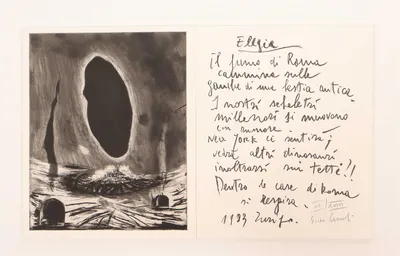 Elegia
il fumo di Roma
cammina sulle
gambe di una bestia antica
I nostri scheletri
millenari si muovono
con rumore.
New York ci sentirà;
vedrà altri dinosauri
inoltrarsi sui tetti?!
Dentro le case di Roma
si respira.
1983